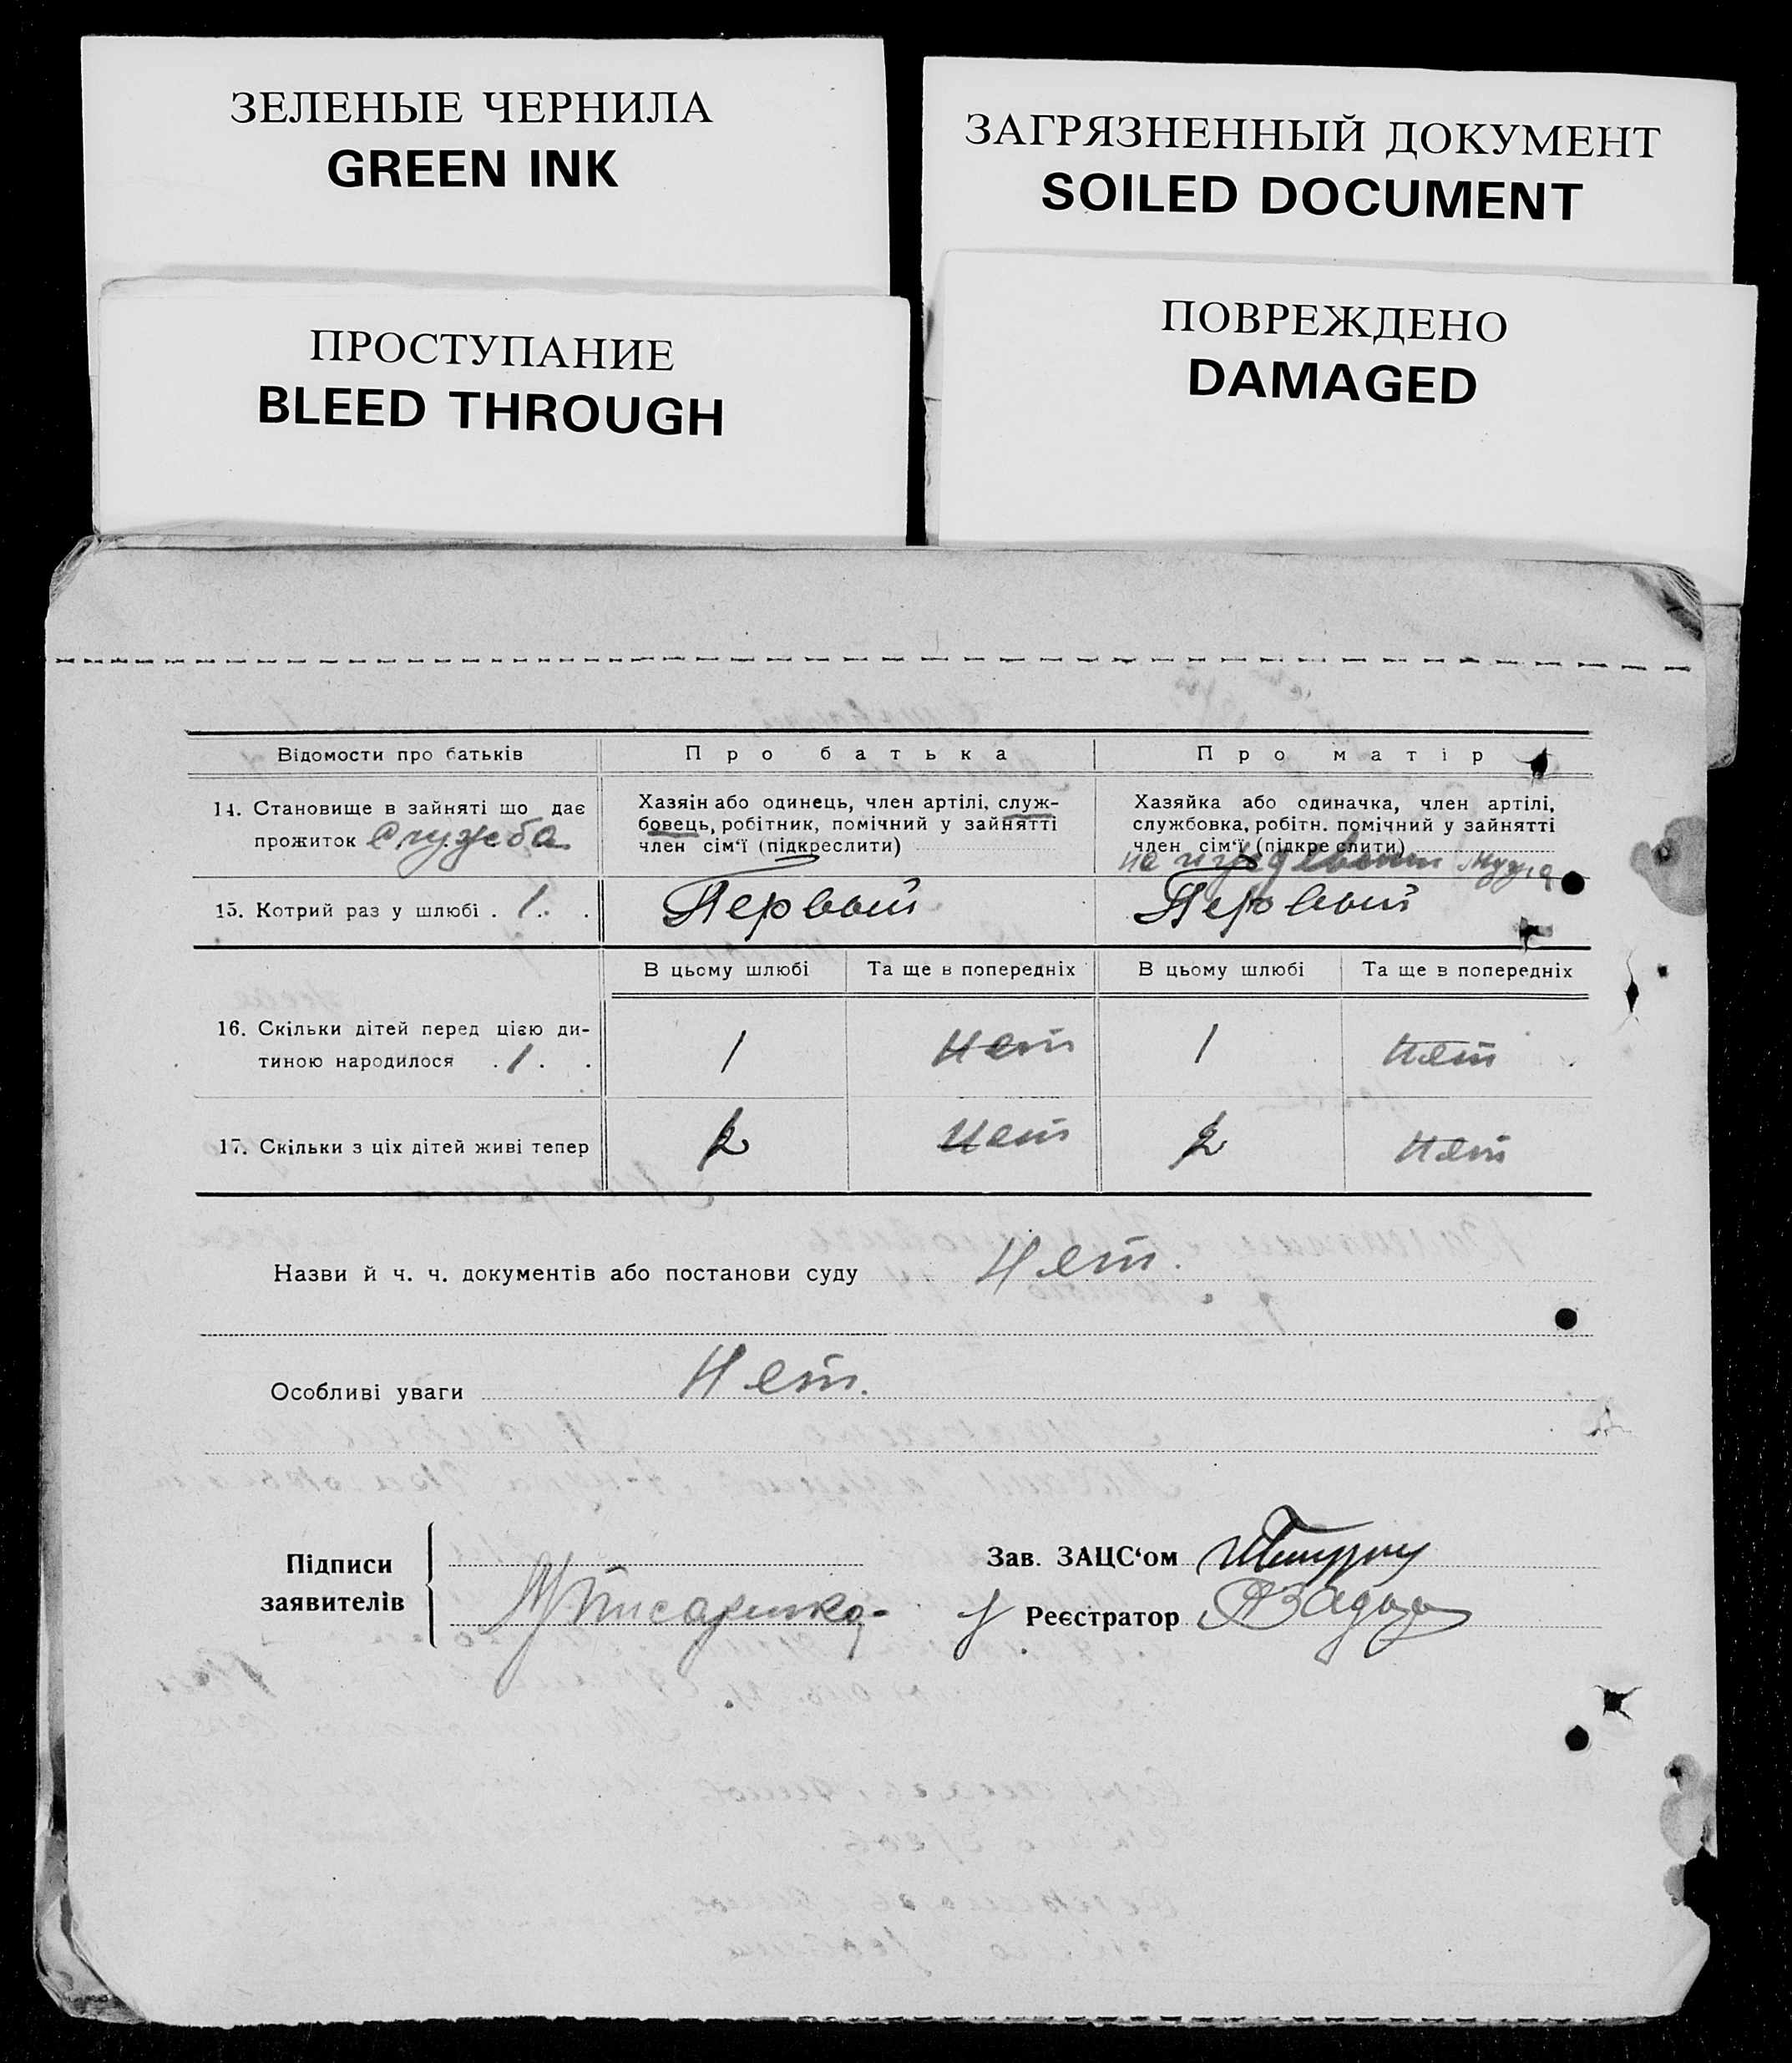 ЗЕЛЕНЫЕ ЧЕРНИЛА
GREEN INK
ЗАГРЯЗНЕННЫЙ ДОКУМЕНТ
SOILED DOCUMENT
ПРОСТУПАНИЕ
BLEED THROUGH
ПОВРЕЖДЕНО
DAMAGED
Відомости про батьків Про батька Про матір
14. Становище в зайняті що дає
прожиток служба
Хазяін або одинець, член артілі, служ-
бовець, робітник, помічний у зайнятті
член сім'ї (підкреслити)
Хазяйка або одиначка, член артілі,
службовка, робітн. помічний у зайнятті
член сім'ї (підкреслити)
на иждевении мужа
15. Котрий раз у шлюбі . 1 . . Первый Первый
В цьому шлюбі Та ще в попередніх В цьому шлюбі Та ще в попередніх
16. Скільки дітей перед цією ди-
тиною народилося . 1 . . 1 нет 1 нет
17. Скільки з ціх дітей живі тепер 2 нет 2 нет
Назви й ч. ч. документів або постанови суду Нет.
Особливі уваги Нет.
Підписи
заявителів
Зав. ЗАЦС'ом
Реєстратор